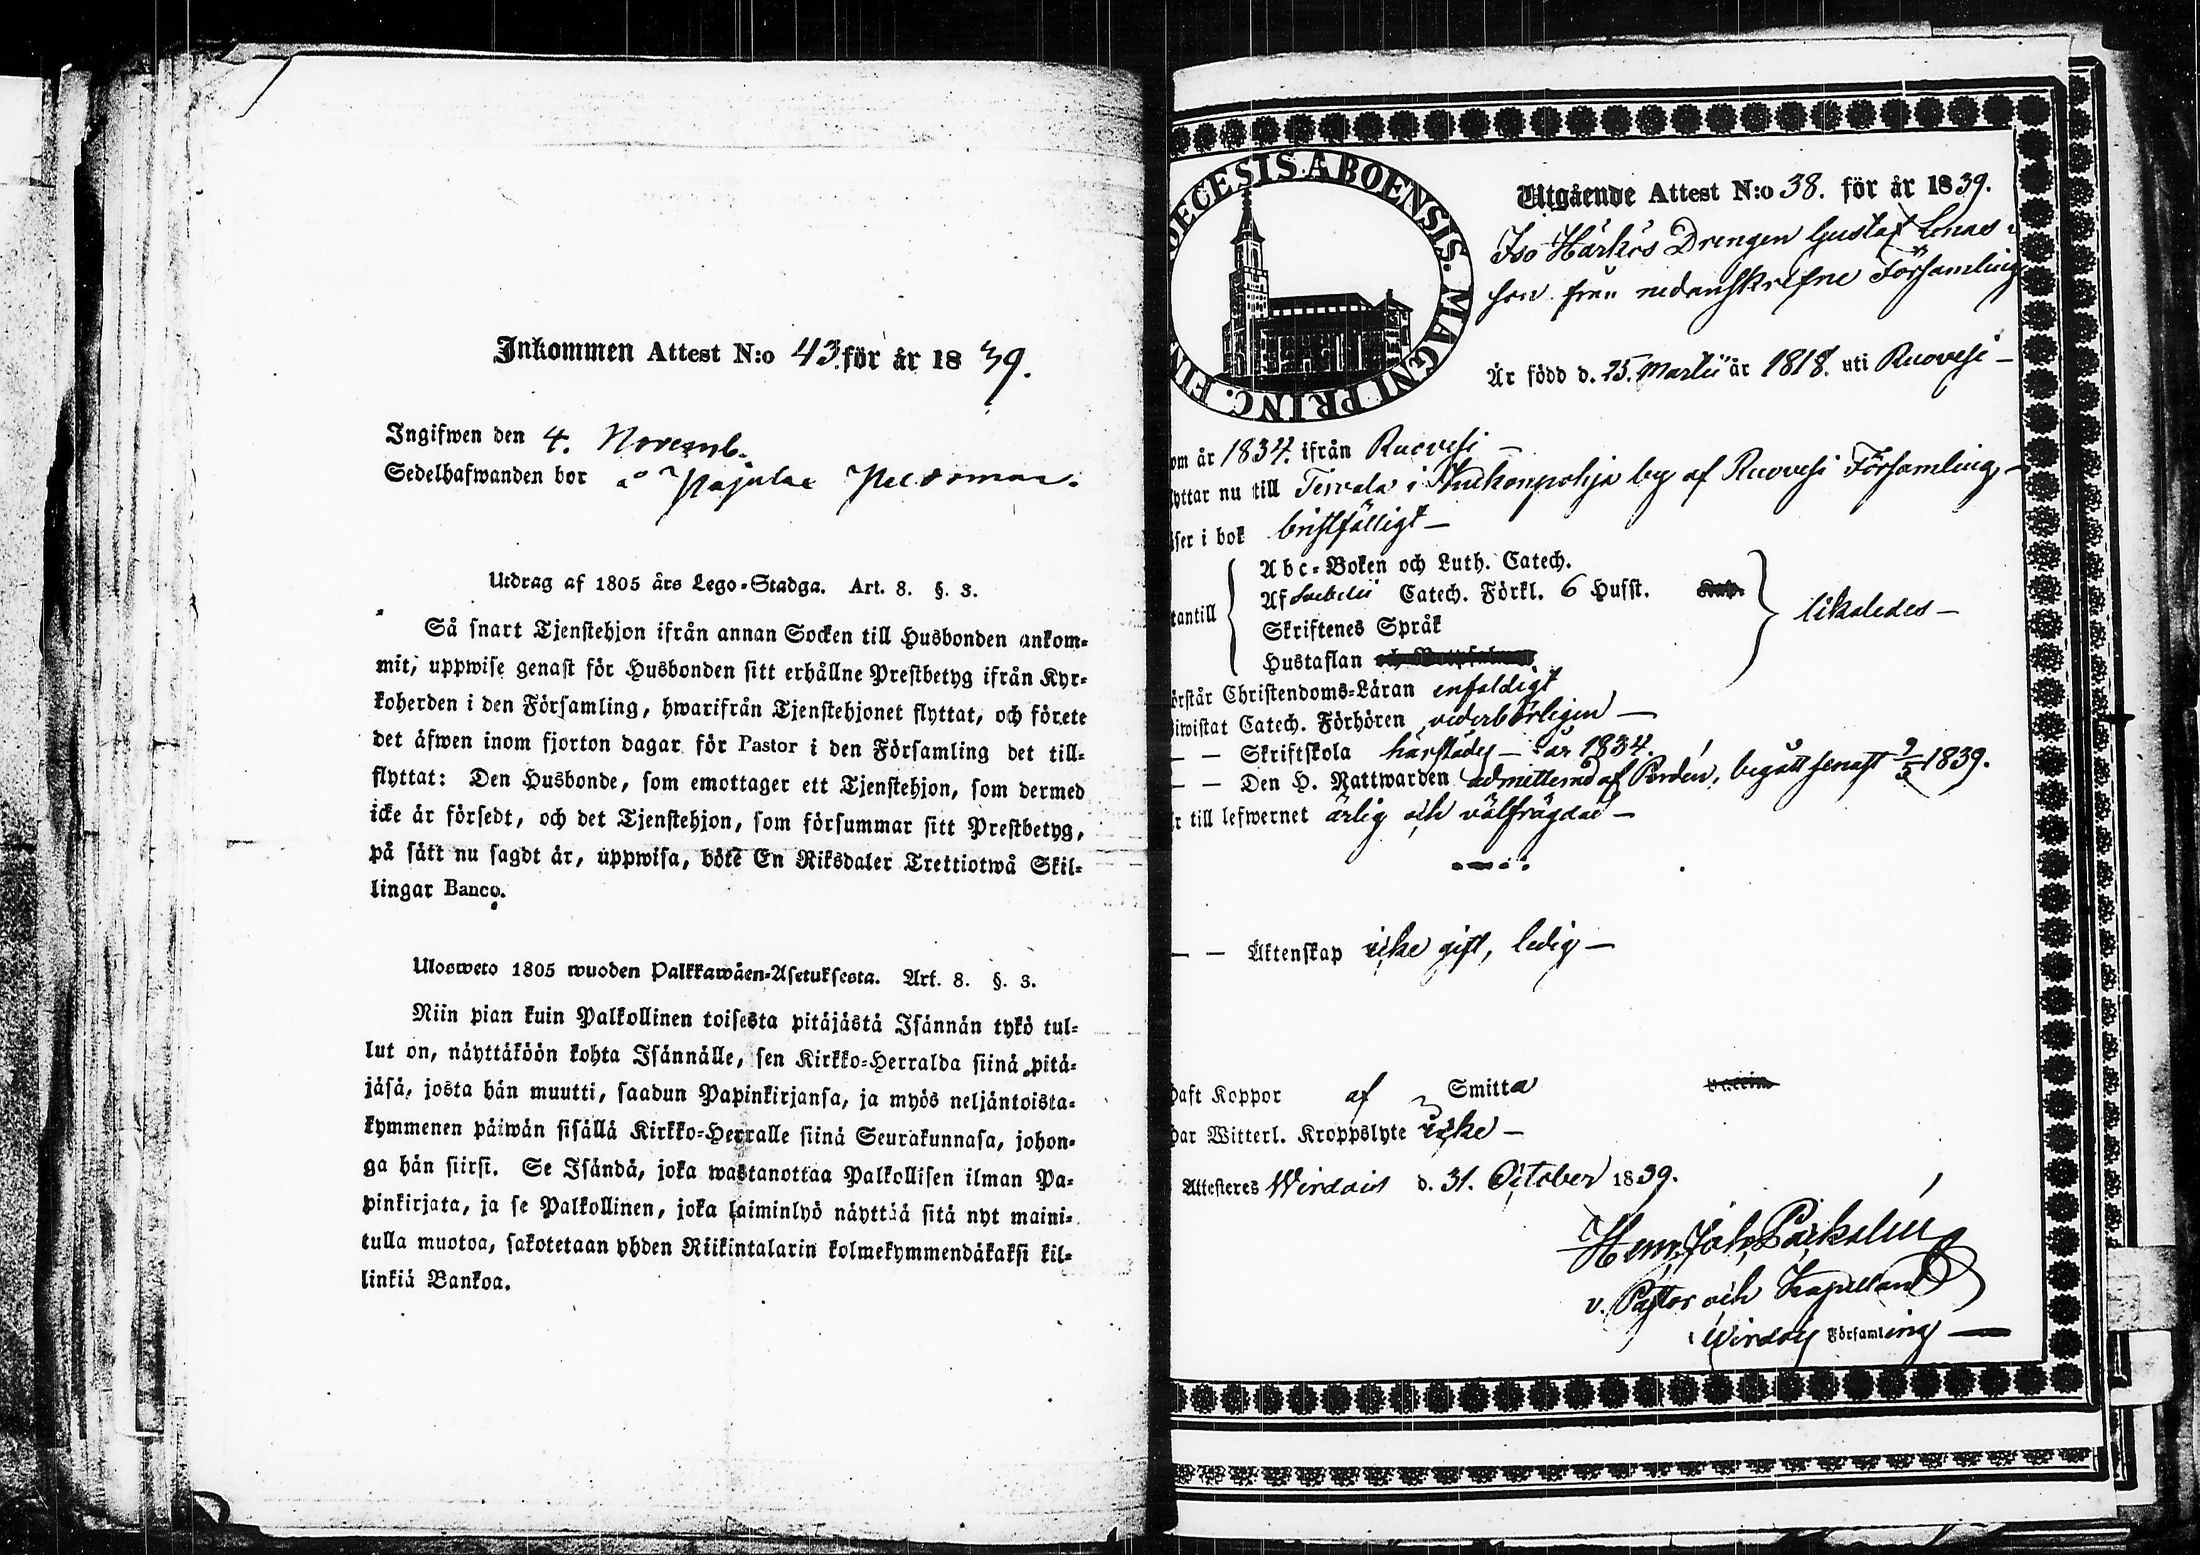 Inkommen Attest N:o 43. för år 1839.
Ingifwen den 4. Novemb.
Sedelhafwanden bor å Pajulax
Utdrag af 1805 års Lego-Stadga. Art. 8. §. 3.
Så snart Tjenstehjon ifrån annan Socken till Husbonden ankom-
mit, uppwise genast för Husbonden sitt erhållne Prestbetyg ifrån Kyr-
koherden i den Församling, hwarifrån Tjenstehjonet flyttat, och förete
det äfwen inom fjorton dagar för Pastor i den Församling det till-
flyttat: Den Husbonde, som emottager ett Tjenstehjon, som dermed
icke är försedt, och det Tjenstehjon, som försummar sitt Prestbetyg,
på sätt nu sagdt är, uppwisa, böte En Riksdaler Trettiotwå Skil-
lingar Banco.
Ulosweto 1805 wuoden Palkkawäen-Asetuksesta. Art. 8. §. 3.
Niin pian kuin Palkollinen toisesta pitäjästä Isännän tykö tul-
lut on, näyttäköön kohta Isännälle, sen Kirkko-Herralda siinä pitä-
jäsä, josta hän muutti, saadun Papinkirjansa, ja myös neljäntoista-
kymmenen päiwän sisällä Kirkko-Herralle siinä Seurakunnasa, johon-
ga hän siirsi. Se Isändä, joka wastanottaa Palkollisen ilman Pa-
pinkirjata, ja se Palkollinen, joka laiminlyö näyttää sitä nyt maini-
tulla muotoa, sakotetaan yhden Riikintalarin kolmekymmendäkaksi kil-
linkiä Bankoa.
OECESIS ABOENSIS. MAGNI PRINC. FIN
Utgående Attest N:o 38. för år 1839.
Iso Härkös Drengen Gustaf Enas-
son från nedanskrefne Församling
Är född d. 25. Martii år 1818. uti Ruovesi –
om år 1834. ifrån Ruovesi –
yttar nu till Tervala i Kuckonpohja by af Ruovesi Församling –
äser i bok bristfälligt –
Abc-Boken och Luth. Catech.
tantill Af Svebelii Catech. Förkl. 6 Hufst. likaledes –
Skriftenes Språk
Hustaflan
örstår Christendoms-Läran enfaldigt
iwistat Catech. Förhören vederbörligen –
– – Skriftskola härstädes – år 1834.
– – Den H. Nattwarden admitterad af Pordén, begått senast 9/5 1839.
r till lefwernet ärlig och välfrägdad –
– – Äktenskap icke gift, ledig –
Haft Koppor af Smitta
Har Witterl. Kroppslyte icke –
Attesteres Wirdois d. 31. October 1839.
Henr. Joh.
v. Pastor och Kapellan
Wirdois Församling –